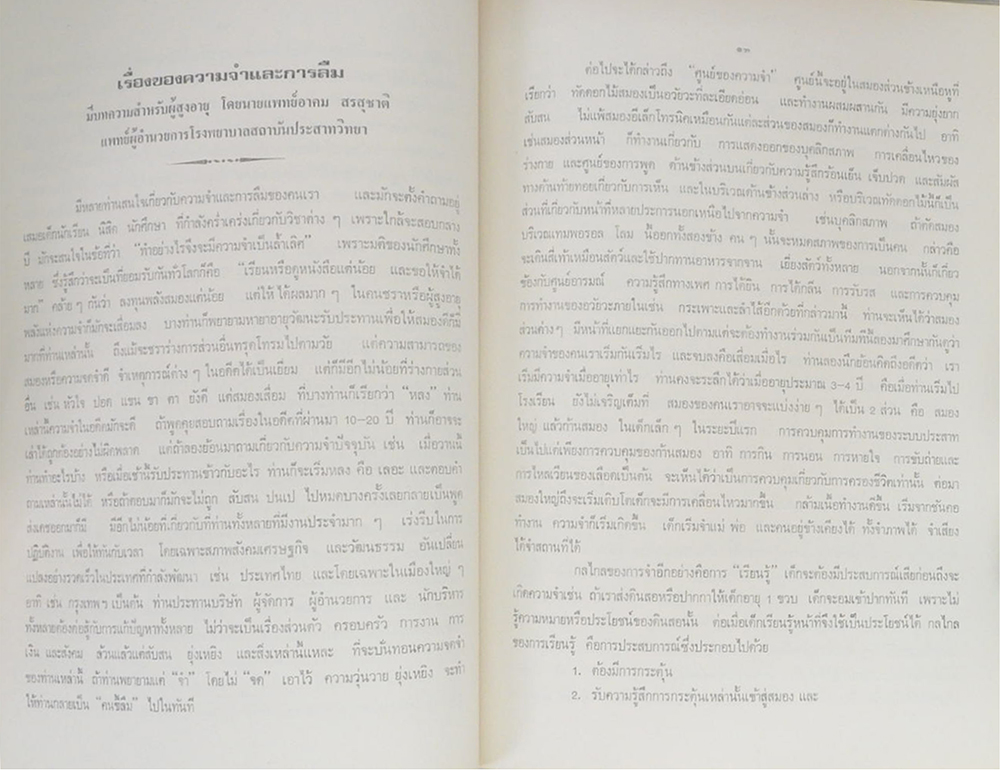 เรื่องของความจำและการลืม
มีบทความสำหรับผู้สูงอายุ โดยนายแพทย์อาคม สรสุชาติ
แพทย์ผู้อำนวยการโรงพยาบาลสถาบันประสาทวิทยา
มีหลายท่านสนใจเกี่ยวกับความจำและการลืมของคนเรา และมักจะตั้งคำถามอยู่
เสมอเด็กนักเรียน นิสิต นักศึกษา ที่กำลังคร่ำเคร่งเกี่ยวกับวิชาต่าง ๆ เพราะใกล้จะสอบกลาง
ปี มักจะสนใจในข้อที่ว่า "ทำอย่างไรจึงจะมีความจำเป็นล้ำเลิศ" เพราะมติของนักศึกษาทั้ง
หลาย ซึ่งรู้สึกว่าจะเป็นที่ยอมรับกันทั่วโลกก็คือ "เรียนหรือดูหนังสือแต่น้อย และขอให้จำได้
มาก" คล้าย ๆ กันว่า ลงทุนพลังสมองแต่น้อย แต่ให้ได้ผลมาก ๆ ในคนชราหรือผู้สูงอายุ
พลังแห่งความจำก็มักจะเสื่อมลง บางท่านก็พยายามหายาอายุวัฒนะรับประทานเพื่อให้สมองดีก็มี
มากที่ท่านเหล่านั้น ถึงแม้จะชราร่างการส่วนอื่นทรุดโทรมไปตามวัย แต่ความสามารถของ
สมองหรือความจดจำดี จำเหตุการณ์ต่าง ๆ ในอดีตได้เป็นเยี่ยม แต่ก็มีอีกไม่น้อยที่ร่างกายส่วน
อื่น เช่น หัวใจ ปอด แขน ขา ตา ยังดี แต่สมองเสื่อม ที่บางท่านก็เรียกว่า "หลง" ท่าน
เหล่านี้ความจำในอดีตมักจะดี ถ้าพูดคุยสอบถามเรื่องในอดีตที่ผ่านมา 10-20 ปี ท่านก็อาจจะ
เล่าได้ถูกต้องอย่างไม่ผิดพลาด แต่ถ้าลองย้อนมาถามเกี่ยวกับความจำปัจจุบัน เช่น เมื่อวานนี้
ท่านทำอะไรบ้าง หรือเมื่อเช้านี้รับประทานข้าวกับอะไร ท่านก็จะเริ่มหลง คือ เลอะ และตอบคำ
ถามเหล่านั้นไม่ได้ หรือถ้าตอบมาก็มักจะไม่ถูก สับสน ปนเป ไปหมดบางครั้งเลยกลายเป็นพูด
ส่งเดชออกมาก็มี มีอีกไม่น้อยที่เกี่ยวกับที่ท่านทั้งหลายที่มีงานประจำมาก ๆ เร่งรีบในการ
ปฏิบัติงาน เพื่อให้ทันกับเวลา โดยเฉพาะสภาพสังคมเศรษฐกิจ และวัฒนธรรม อันเปลี่ยน
แปลงอย่างรวดเร็วในประเทศที่กำลังพัฒนา เช่น ประเทศไทย และโดยเฉพาะในเมืองใหญ่ ๆ
อาทิ เช่น กรุงเทพฯ เป็นต้น ท่านประธานบริษัท ผู้จัดการ ผู้อำนวยการ และ นักบริหาร
ทั้งหลายต้องต่อสู้กับการแก้ปัญหาทั้งหลาย ไม่ว่าจะเป็นเรื่องส่วนตัว ครอบครัว การงาน การ
เงิน และสังคม ล้วนแล้วแต่สับสน ยุ่งเหยิง และสิ่งเหล่านี้แหละ ที่จะบั่นทอนความจดจำ
ของท่านเหล่านี้ ถ้าท่านพยายามแต่ "จำ" โดยไม่ "จด" เอาไว้ ความวุ่นวาย ยุ่งเหยิง จะทำ
ให้ท่านกลายเป็น "คนขี้ลืม" ไปในทันที
๑๓
ต่อไปจะได้กล่าวถึง "ศูนย์ของความจำ" ศูนย์นี้จะอยู่ในสมองส่วนข้างเหนือหูที่
เรียกว่า ทัดดอกไม้สมองเป็นอวัยวะที่ละเอียดอ่อน และทำงานผสมผสานกัน มีความยุ่งยาก
สับสน ไม่แพ้สมองอีเล็กโทรนิคเหมือนกันแต่ละส่วนของสมองก็ทำงานแตกต่างกันไป อาทิ
เช่นสมองส่วนหน้า ก็ทำงานเกี่ยวกับ การแสดงออกของบุคลิกสภาพ การเคลื่อนไหวของ
ร่างกาย และศูนย์ของการพูด ด้านข้างส่วนบนเกี่ยวกับความรู้สึกร้อนเย็น เจ็บปวด และสัมผัส
ทางด้านท้ายทอยเกี่ยวกับการเห็น และในบริเวณด้านข้างส่วนล่าง หรือบริเวณทัดดอกไม้นี้ก็เป็น
ส่วนที่เกี่ยวกับหน้าที่หลายประการนอกเหนือไปจากความจำ เช่นบุคลิกสภาพ ถ้าตัดสมอง
บริเวณเทมพอรอล โลบ นี้ออกทั้งสองข้าง คน ๆ นั้นจะหมดสภาพของการเป็นคน กล่าวคือ
จะเดินสี่เท้าเหมือนสัตว์และใช้ปากทานอาหารจากจาน เยี่ยงสัตว์ทั้งหลาย นอกจากนั้นก็เกี่ยว
ข้องกับศูนย์อารมณ์ ความรู้สึกทางเพศ การได้ยิน การได้กลิ่น การรับรส และการควบคุม
การทำงานของอวัยวะภายในเช่น กระเพาะและลำไส้อีกด้วยที่กล่าวมานี้ ท่านจะเห็นได้ว่าสมอง
ส่วนต่างๆ มีหน้าที่แยกแยะกันออกไปตามแต่จะต้องทำงานร่วมกันเป็นทีมทีนี้ลองมาศึกษากันดูว่า
ความจำของคนเราเริ่มกันเริ่มไร และจบลงคือเสื่อมเมื่อไร ท่านลองนึกย้อนคิดถึงอดีตว่า เรา
เริ่มมีความจำเมื่ออายุเท่าไร ท่านคงจะระลึกได้ว่าเมื่ออายุประมาณ 3-4 ปี คือเมื่อท่านเริ่มไป
โรงเรียน ยังไม่เจริญเต็มที่ สมองของคนเราอาจจะแบ่งง่ายๆ ได้เป็น 2 ส่วน คือ สมอง
ใหญ่ แล้วก้านสมอง ในเด็กเล็กๆ ในระยะปีแรก การควบคุมการทำงานของระบบประสาท
เป็นไปแค่เพียงการควบคุมของก้านสมอง อาทิ การกิน การนอน การหายใจ การขับถ่ายและ
การไหลเวียนของเลือดเป็นต้น จะเห็นได้ว่าเป็นการควบคุมเกี่ยวกับการครองชีวิตเท่านั้น ต่อมา
สมองใหญ่ถึงจะเริ่มเติบโตเด็กจะมีการเคลื่อนไหวมากขึ้น กล้ามเนื้อทำงานดีขึ้น เริ่มจากชันคอ
ทำงาน ความจำก็เริ่มเกิดขึ้น เด็กเริ่มจำแม่ พ่อ และคนอยู่ข้างเคียงได้ ทั้งจำภาพได้ จำเสียง
ได้จำสถานที่ได้
กลไกลของการจำอีกอย่างคือการ "เรียนรู้" เด็กจะต้องมีประสบการณ์เสียก่อนถึงจะ
เกิดความจำเช่น ถ้าเราส่งดินสอหรือปากกาให้เด็กอายุ 1 ขวบ เด็กจะอมเข้าปากทันที เพราะไม่
รู้ความหมายหรือประโยชน์ของดินสอนั้น ต่อเมื่อเด็กเรียนรู้หน้าที่จึงใช้เป็นประโยชน์ได้ กลไกล
ของการเรียนรู้ คือการประสบการณ์ซึ่งประกอบไปด้วย
1. ต้องมีการกระตุ้น
2. รับความรู้สึกการกระตุ้นเหล่านั้นเข้าสู่สมอง และ